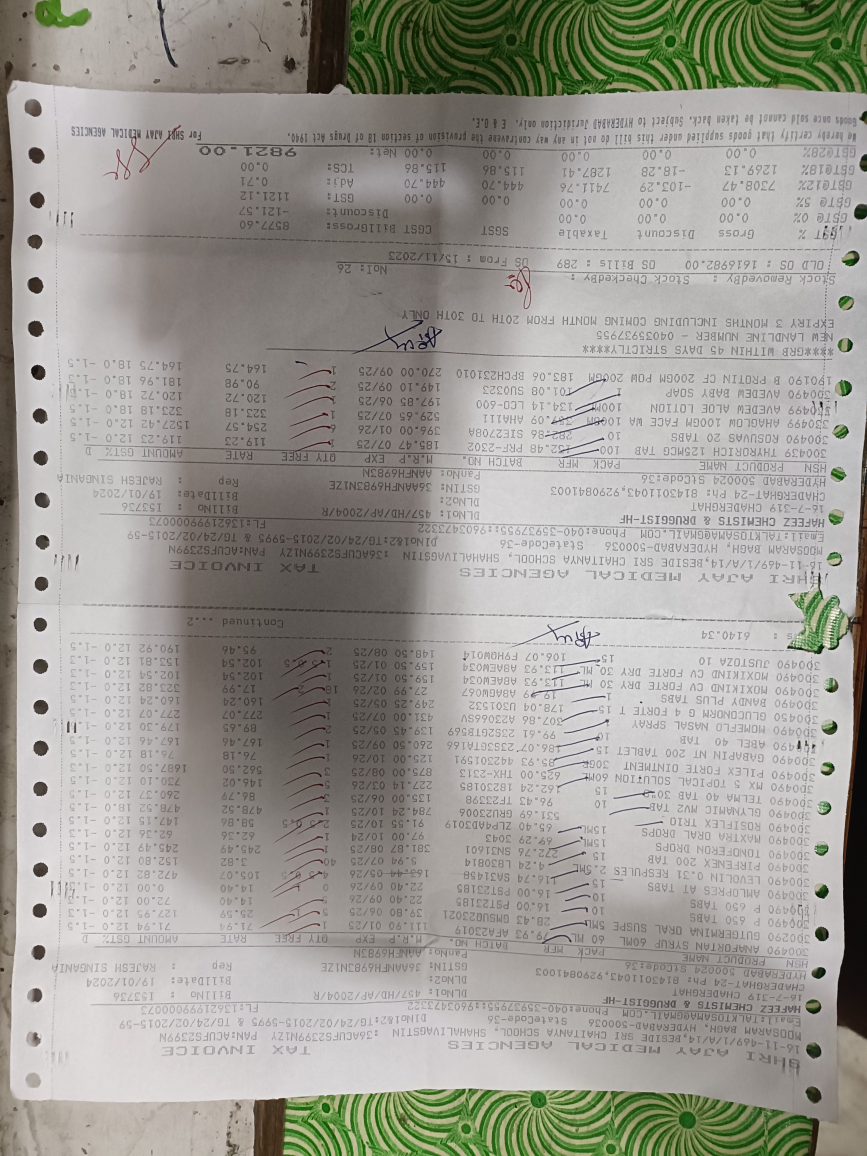 SHRI AJAY MEDICAL AGENCIES TAX INVOICE
16-11-469/1/A/14,BESIDE SRI CHAITANYA SCHOOL, SHAHALIVAGSTIN :36ACUFS2399N1ZY PAN:ACUFS2399N
MOOSARAM BAGH, HYDERABAD-500036 StateCode-36 DlNo1&2:TG/24/02/2015-5995 & TG/24/02/2015-59
Email:TALKTOSAMA@GMAIL.COM Phone:040-35937955::9603473322 FL:13621999000073
HAFEEZ CHEMISTS & DRUGGIST-HF DLNo1: 457/HD/AP/2004/R BillNo : 153736
16-7-319 CHADERGHAT DLNo2: BillDt : 19/01/2024
CHADERGHAT-24 Ph: 8143011043,9290841003 GSTIN: 36AANFH6983N1ZE Rep : RAJESH SINGANIA
HYDERABAD 500024 Stcode:36 PanNo: AANFH6983N
HSN PRODUCT NAME PACK MFR BATCH NO. M.R.P EXP QTY FREE RATE AMOUNT GST% D
300490 ANAFORTAN SYRUP 60ML 60 ML 79.93 AFA23019 111.90 01/25 1 71.94 71.94 12.0 -1.5
300290 GUTGERMINA ORAL SUSPE 5ML 28.43 GMSUG23021 39.80 06/25 5 25.59 127.95 12.0 -1.3
300490 P 650 TABS 10 16.00 PST23185 22.40 09/26 5 14.40 72.00 12.0 -1
300490 P 650 TABS 10 16.00 PST23185 22.40 09/26 0 14.40 0.00 12.0 -1
300490 AMLOPRES AT TABS 15 116.74 SA31458 163.44 05/26 4.5 0.5 105.07 472.82 12.0 -1.5
300490 LEVOLIN 0.31 RESPULES 2.5ML 4.24 LB30814 5.94 07/25 40 3.82 152.80 12.0 -1.5
300490 PIRFENEX 200 TAB 15 272.76 SN31601 381.87 08/25 1 245.49 245.49 12.0 -1.5
300490 TONOFERON DROPS 15ML 69.29 3043 97.00 10/24 1 62.36 62.36 12.0 -1.3
300490 MAXTRA ORAL DROPS 15ML 65.40 ZLPA4D3019 91.55 10/25 2.5 0.5 58.86 147.15 12.0 -1.5
300490 ROSIFLEX TRIO 531.69 GRU23006 784.24 10/25 1 478.52 478.52 18.0 -1.5
300490 GLYNAMIC MV2 TAB 10 96.43 TF23398 135.00 06/25 3 86.79 260.37 12.0 -1.5
300490 TELMA 40 TAB 30'S 162.24 18230185 227.14 03/26 5 146.02 730.10 12.0 -1.5
300490 MX 5 TOPICAL SOLUTION 60ML 625.00 THX-2313 875.00 08/25 3 562.50 1687.50 12.0 -1.3
300490 PILEX FORTE OINTMENT 30GM 85.93 442301591 125.00 10/26 1 76.18 76.18 12.0 -1.5
300490 GABAPIN NT 200 TABLET 15 186.07 23SG1A166 260.50 09/25 1 167.46 167.46 12.0 -1.5
300490 ABEL 40 TAB 10 99.61 23SG2BT8619 139.45 05/25 2 89.65 179.30 12.0 -1.5
300490 MOMEFLO NASAL SPRAY 307.86 AZ0669SV 431.00 07/25 1 277.07 277.07 12.0 -1.5
300450 GLUCONORM G 4 FORTE T 15 178.04 U301532 249.25 05/25 1 160.24 160.24 12.0 -1.5
300490 BANDY PLUS TABS 1 19.99 ABAW067 27.99 02/26 18 2 17.99 323.82 12.0 -1.3
300490 MOXIKIND CV FORTE DRY 30 ML 113.93 A8AEW034 159.50 01/25 1 102.54 102.54 12.0 -1.3
300490 MOXIKIND CV FORTE DRY 30 ML 113.93 A8AEW034 159.50 01/25 1.5 0.5 102.54 153.81 12.0 -1.3
300490 JUSTOZA 10 15 106.07 F9HOW014 148.50 08/25 2 95.46 190.92 12.0 -1.5
: 6140.34 Continued ...2
SHRI AJAY MEDICAL AGENCIES TAX INVOICE
16-11-469/1/A/14,BESIDE SRI CHAITANYA SCHOOL, SHAHALIVAGSTIN :36ACUFS2399N1ZY PAN:ACUFS2399N
MOOSARAM BAGH, HYDERABAD-500036 StateCode-36 DlNo1&2:TG/24/02/2015-5995 & TG/24/02/2015-59
Email:TALKTOSAMA@GMAIL.COM Phone:040-35937955::9603473322 FL:13621999000073
HAFEEZ CHEMISTS & DRUGGIST-HF DLNo1: 457/HD/AP/2004/R BillNo : 153736
16-7-319 CHADERGHAT DLNo2: BillDt : 19/01/2024
CHADERGHAT-24 Ph: 8143011043,9290841003 GSTIN: 36AANFH6983N1ZE Rep : RAJESH SINGANIA
HYDERABAD 500024 Stcode:36 PanNo: AANFH6983N
HSN PRODUCT NAME PACK MFR BATCH NO. M.R.P EXP QTY FREE RATE AMOUNT GST% D
300436 THYRORICH 125MCG TAB 100 152.48 PRT-2302 185.47 07/25 1 119.23 119.23 12.0 -1.5
300490 ROSUVAS 20 TABS 10 282.86 SIE2708A 396.00 01/26 6 254.57 1527.42 12.0 -1.5
330499 AHAGLOW 100GM FACE WA 100GM 359.09 AHA111 529.65 07/25 1 323.18 323.18 18.0 -1.5
330499 AVEDEW ALOE LOTION 100ML 134.14 LCD-600 197.85 06/25 1 120.72 120.72 18.0 -1.6
300490 AVEDEW BABY SOAP 1 101.08 SU0323 149.10 09/25 2 90.98 181.96 18.0 -1.3
190190 B PROTIN CF 200GM POW 200GM 183.06 BPCH231010 270.00 09/25 1 164.75 164.75 18.0 -1.5
****GRB WITHIN 45 DAYS STRICTLY*****
NEW LANDLINE NUMBER - 04035937955
EXPIRY 3 MONTHS INCLUDING COMING MONTH FROM 20TH TO 30TH ONLY
Stock RemovedBy : Stock CheckedBy : NoI: 26
OLD OS : 1616982.00 OS Bills : 289 OS From : 15/11/2023
GST % Gross Discount Taxable SGST CGST BillGross: 8577.60
GST@ 0% 0.00 0.00 0.00 Discount: -121.57
GST@ 5% 0.00 0.00 0.00 0.00 0.00 GST: 1121.12
GST@12% 7308.47 -103.29 7411.76 444.70 444.70 Adj: 0.71
GST@18% 1269.13 -18.28 1287.41 115.86 115.86 TCS: 0.00
GST@28% 0.00 0.00 0.00 0.00 0.00 Net: 9821.00
We hereby certify that goods supplied under this bill do not in any way contravene the provision of section 18 of Drugs Act 1940. For SHRI AJAY MEDICAL AGENCIES
Goods once sold cannot be taken back. Subject to HYDERABAD Juridiction only. E & O.E.